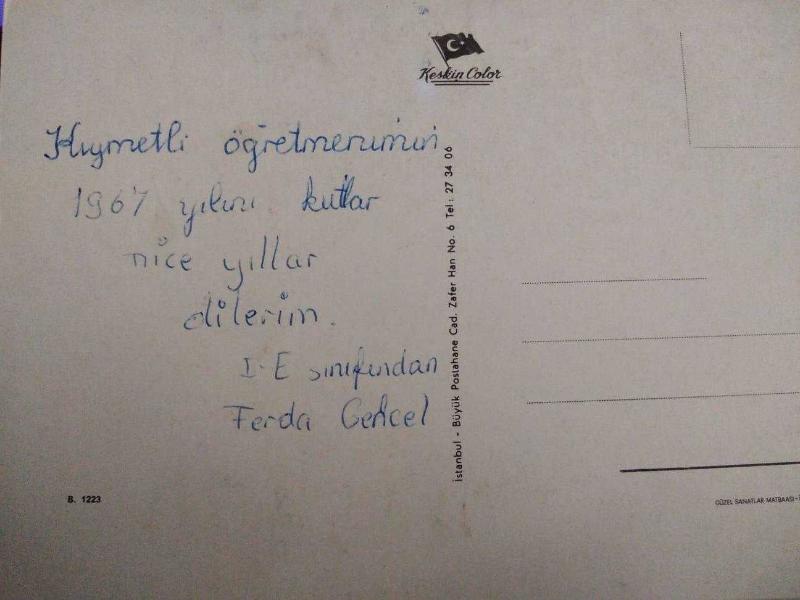 Keskin Color
Kıymetli öğretmenimin
1967 yılını kutlar
nice yıllar
dilerim.
I-E sınıfından
Ferda Gencel
İstanbul - Büyük Postahane Cad. Zafer Han No. 6 Tel: 27 34 06
B. 1223
GÜZEL SANATLAR MATBAASI -